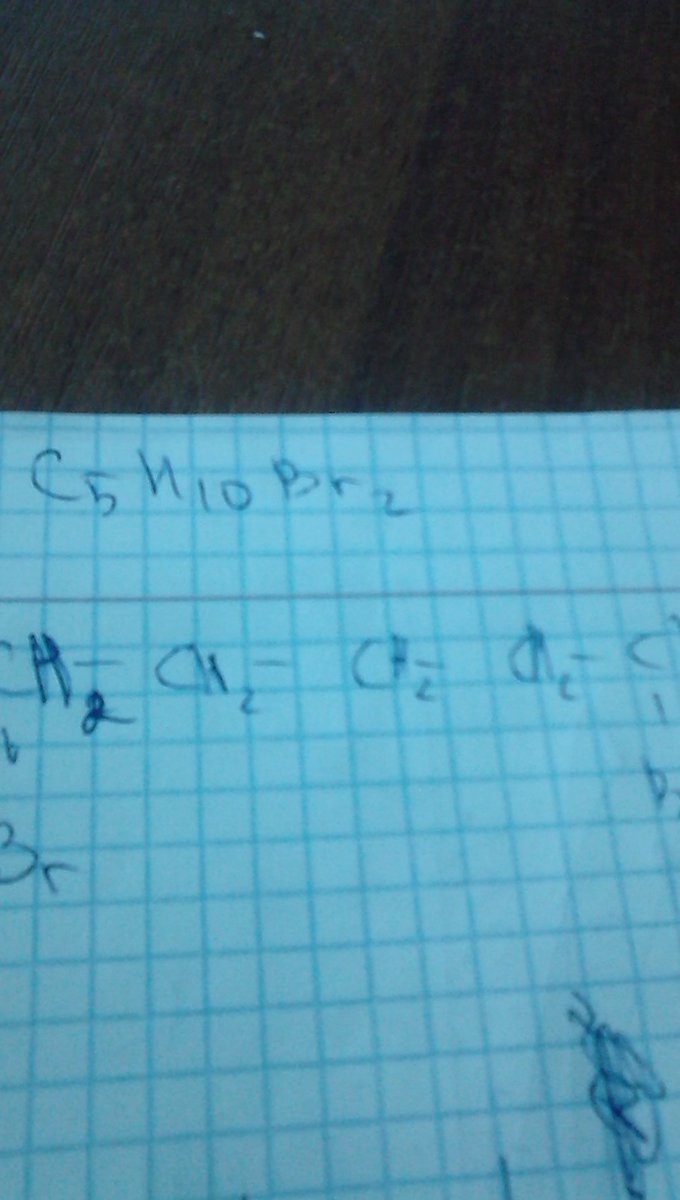 C5H10Br2
CH2- CH2- CH2- CH2- C
Br